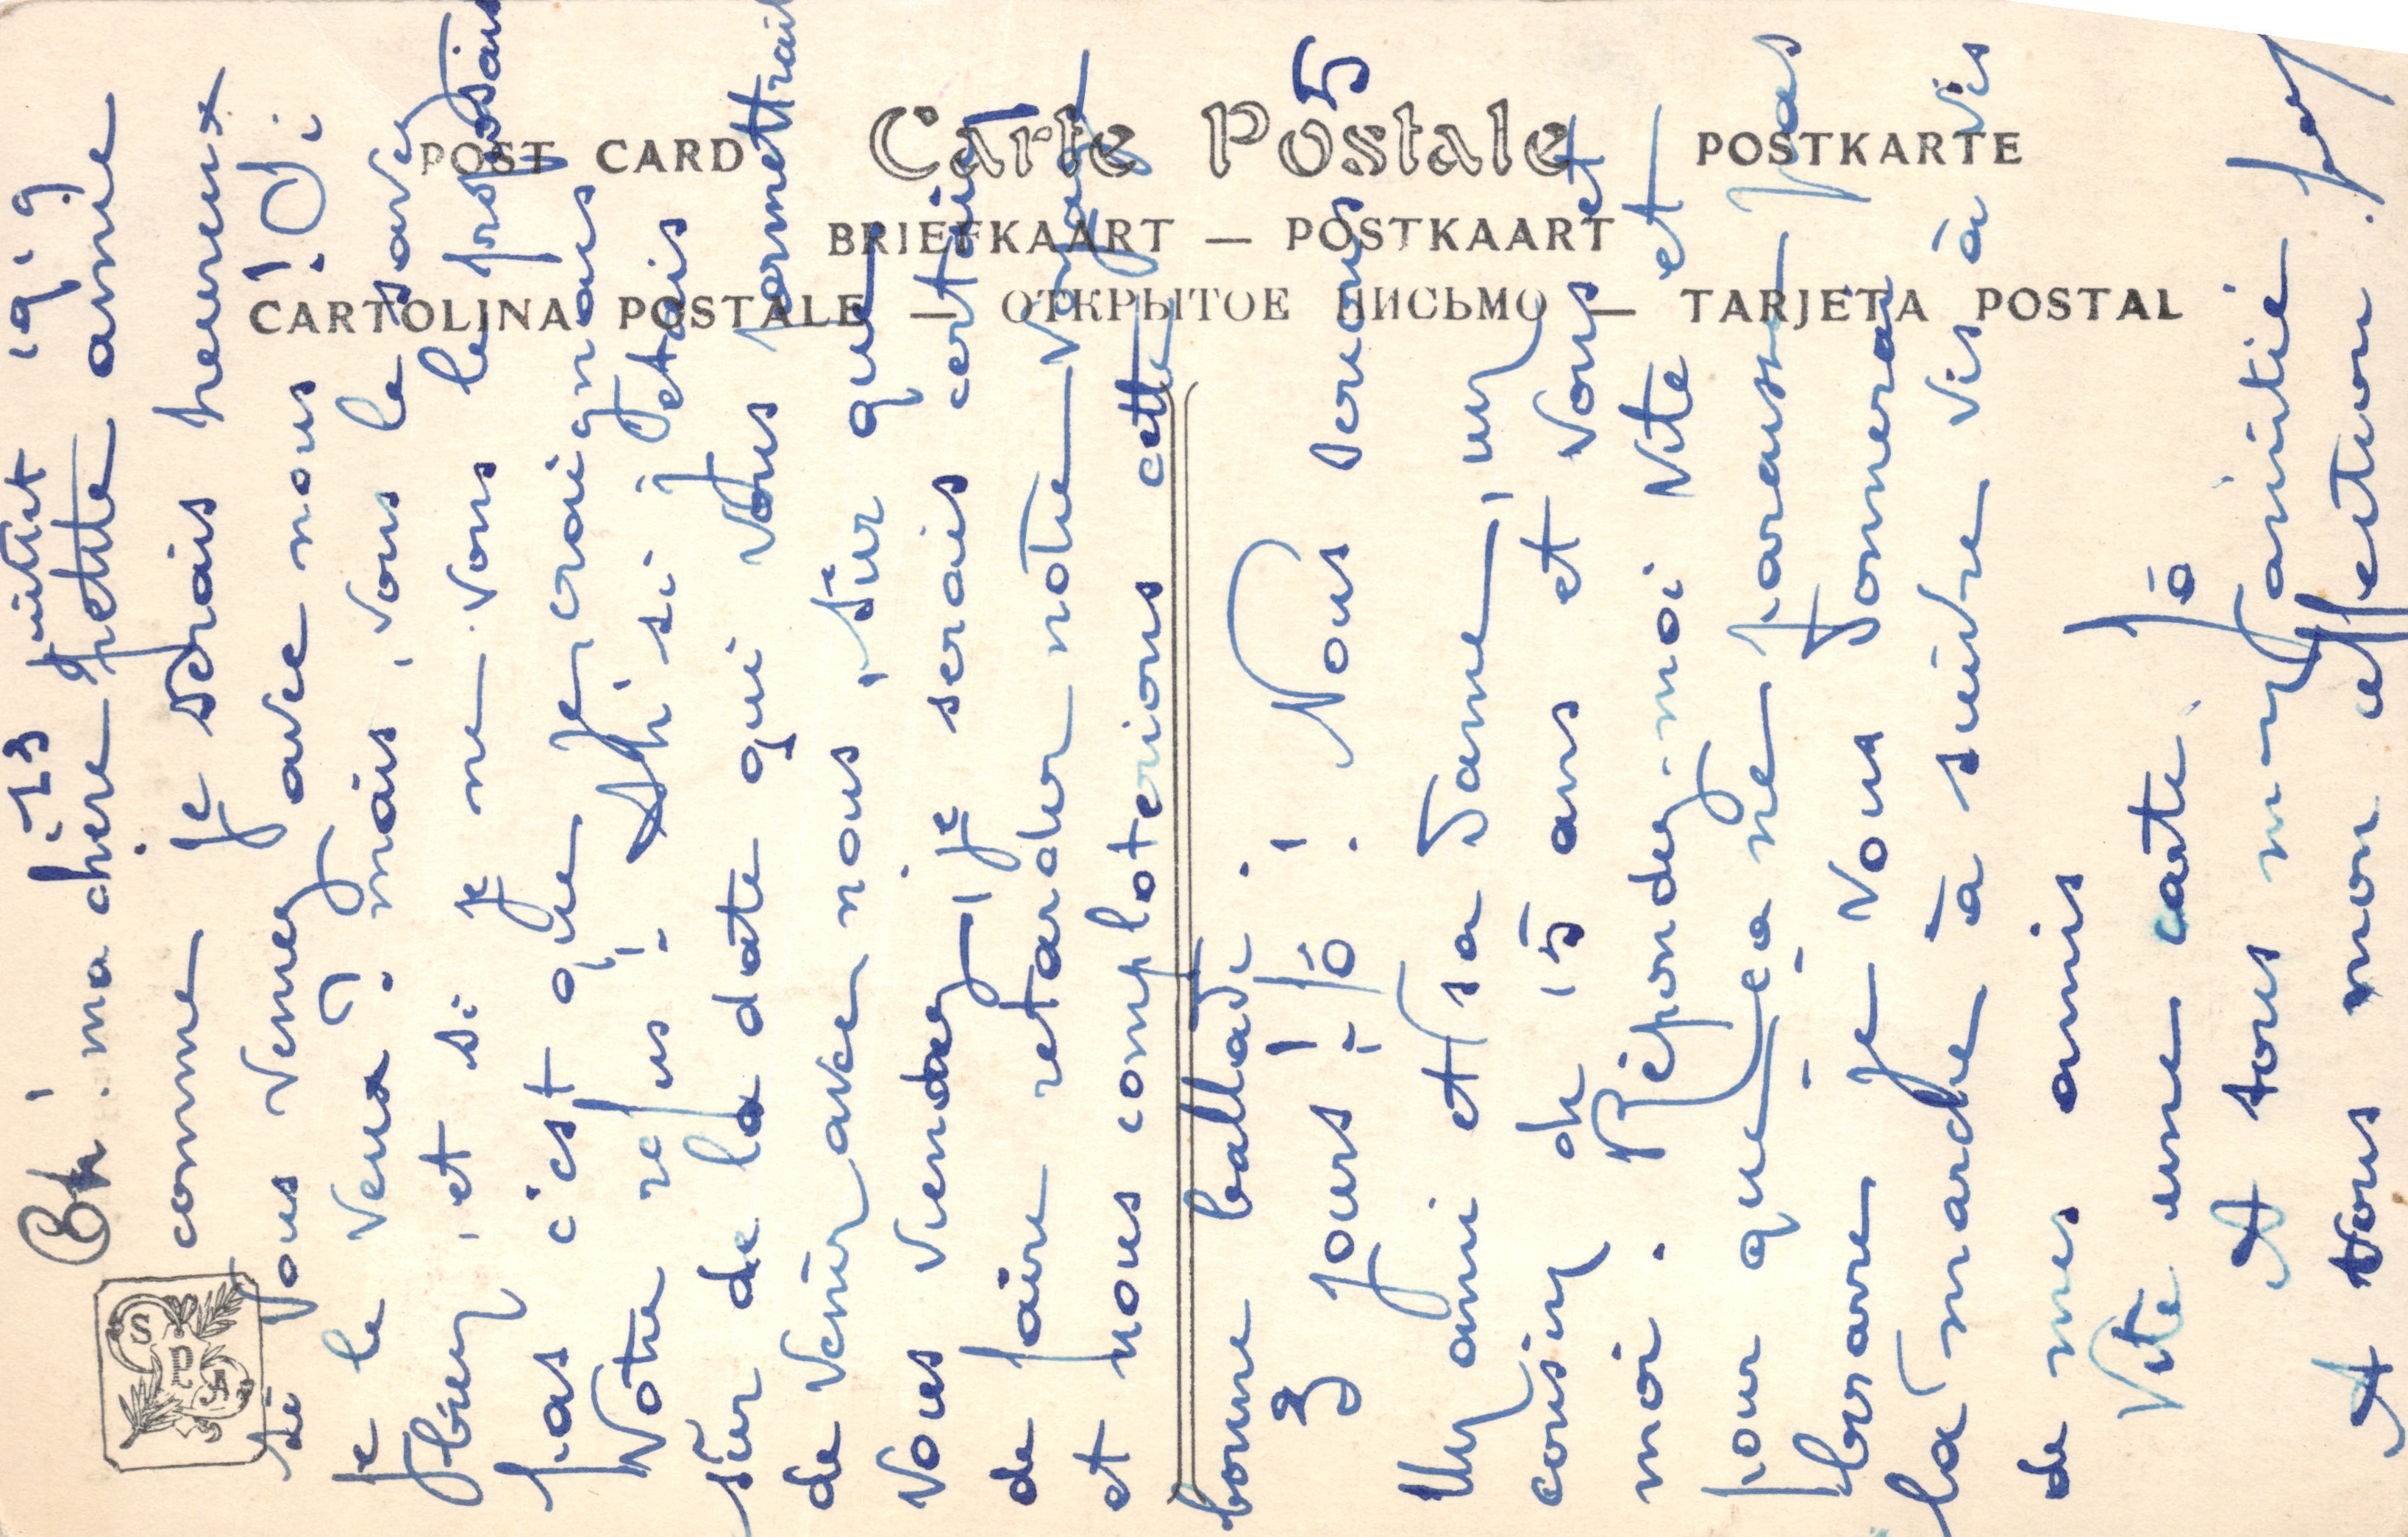 POST CARD Carte Postale POSTKARTE
BRIEFKAART — POSTKAART
CARTOLINA POSTALE — ОТКРЫТОЕ ПИСЬМО — TARJETA POSTAL
13 juillet 19.9
Eh! ma chère petite amie
comme je serais heureux
si vous venez avec nous! Si
je le veux? mais, vous le savez
bien, et si je ne vous le proposais
pas c'est que je craignais
Votre refus! Ah! si j'étais
sûr de la date qui vous permettrait
de venir avec nous, sûr que
vous viendrez, je serais certain
de faire retarder notre voyage
et nous comploterions cette
bonne ballade! Nous serons 5
3 jours!!
Un ami et sa dame, un
cousin de 15 ans et vous et
moi. Répondez-moi vite et
pour que ça ne paraisse pas
bizarre je vous donnerai
la marche à suivre vis à vis
de mes amis
Vite une carte.
A tous mon amitié
A vous mon affection.